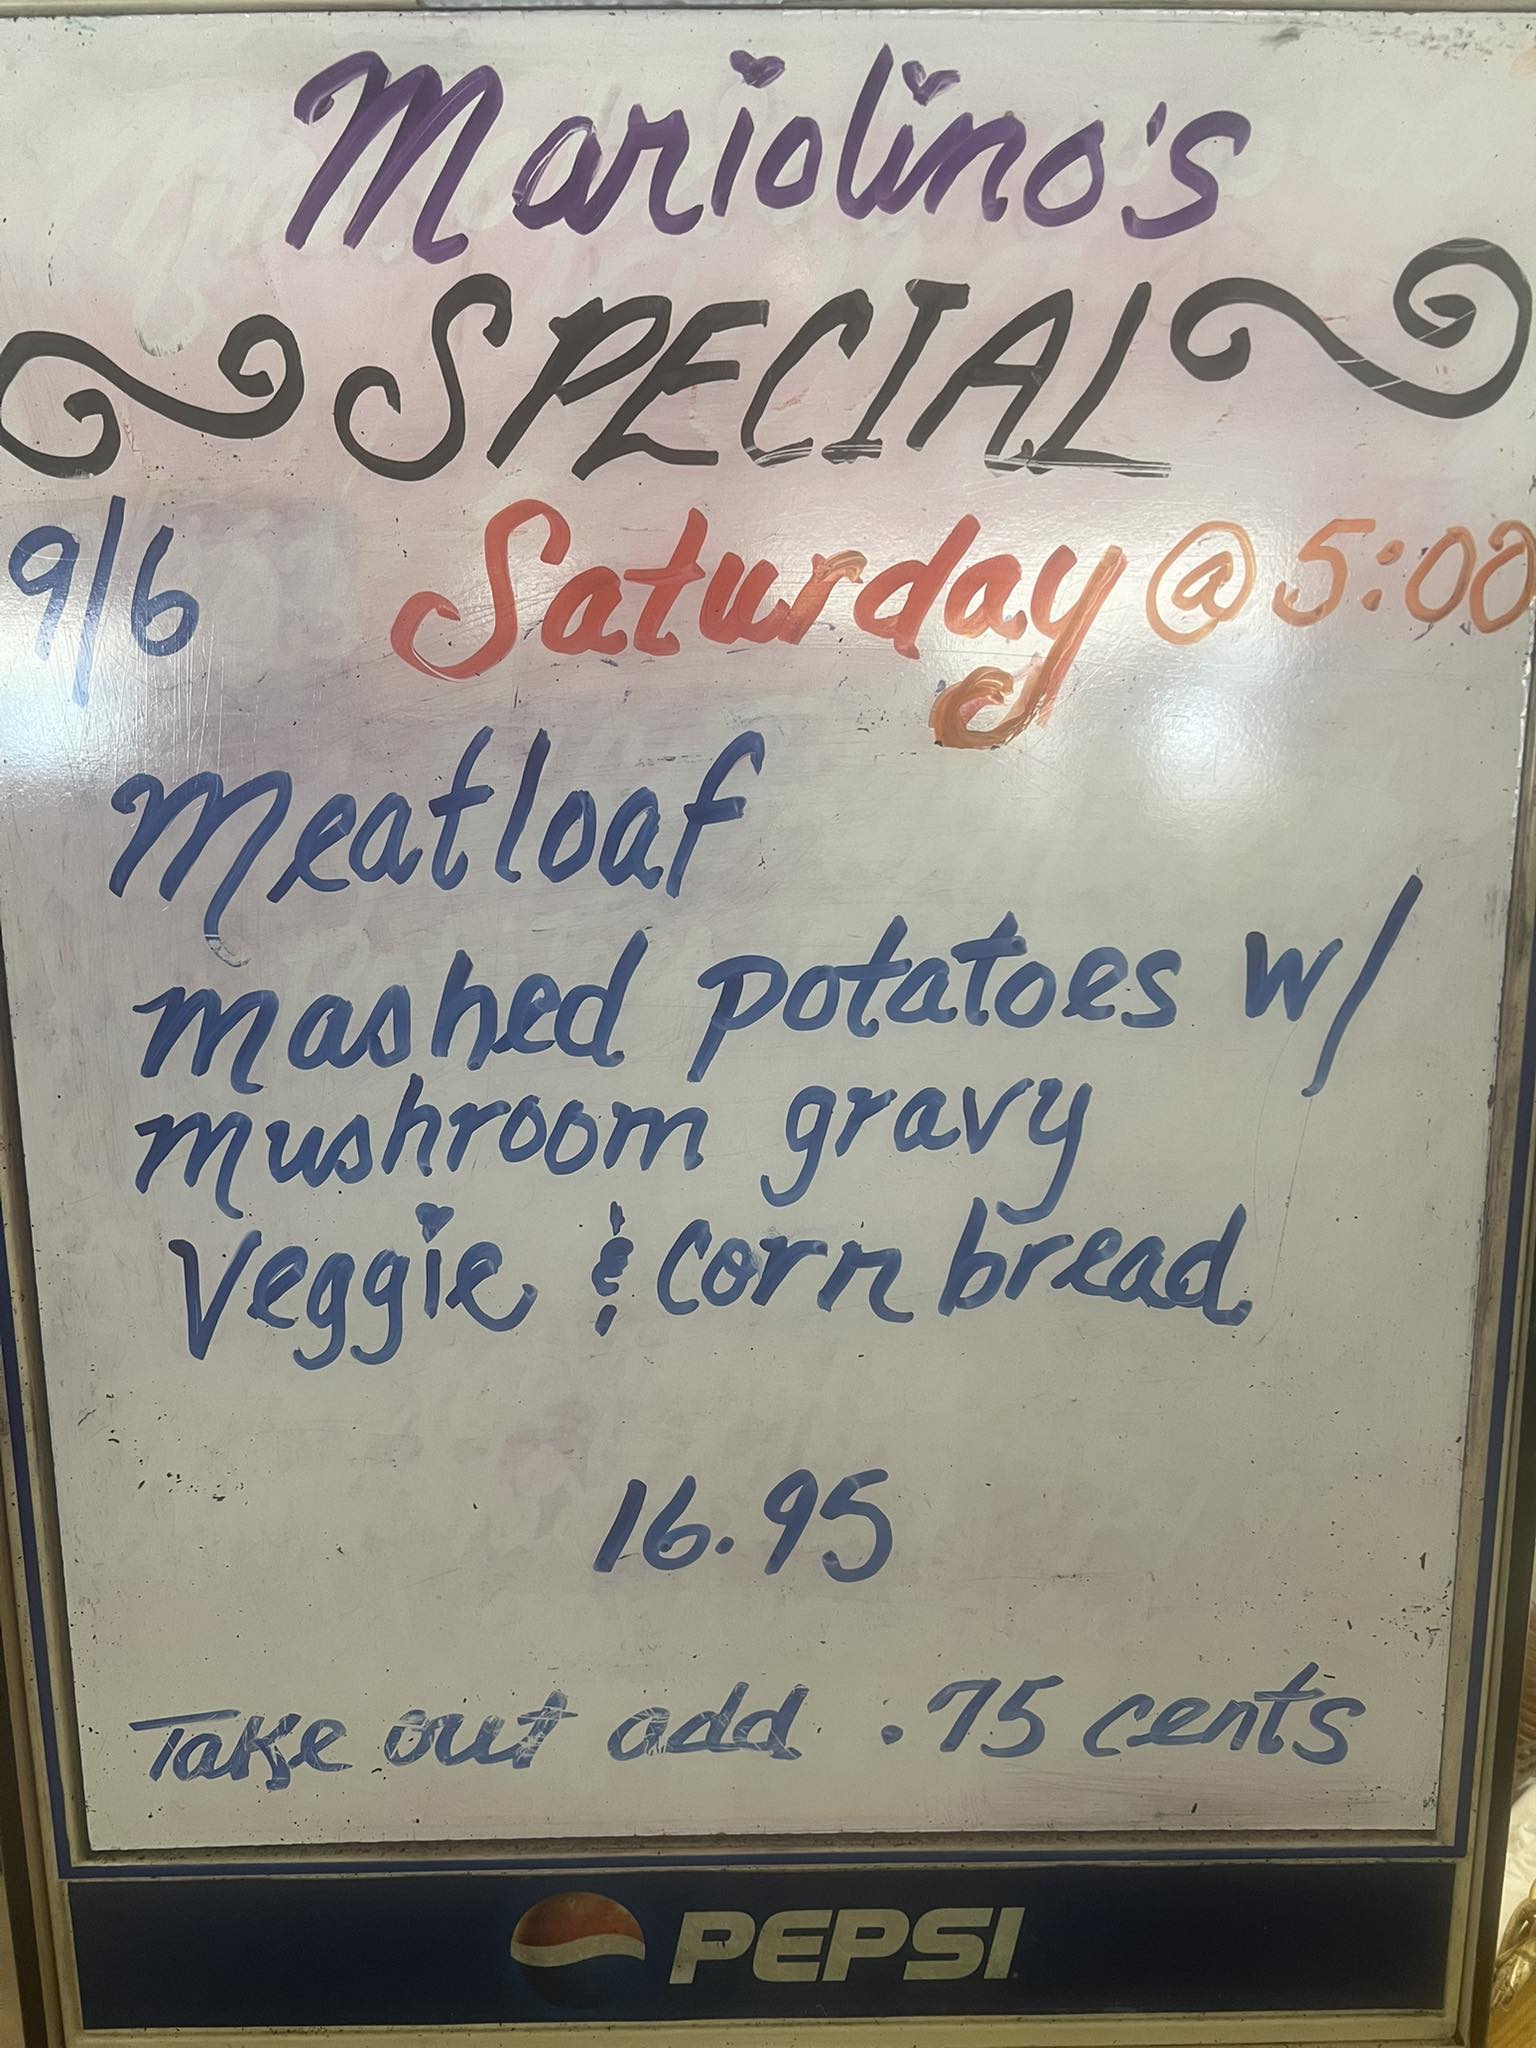 Mariolino's
SPECIAL
9/6 Saturday @ 5:00
Meatloaf
mashed potatoes w/
mushroom gravy
Veggie & Corn bread
16.95
Take out add .75 cents
PEPSI